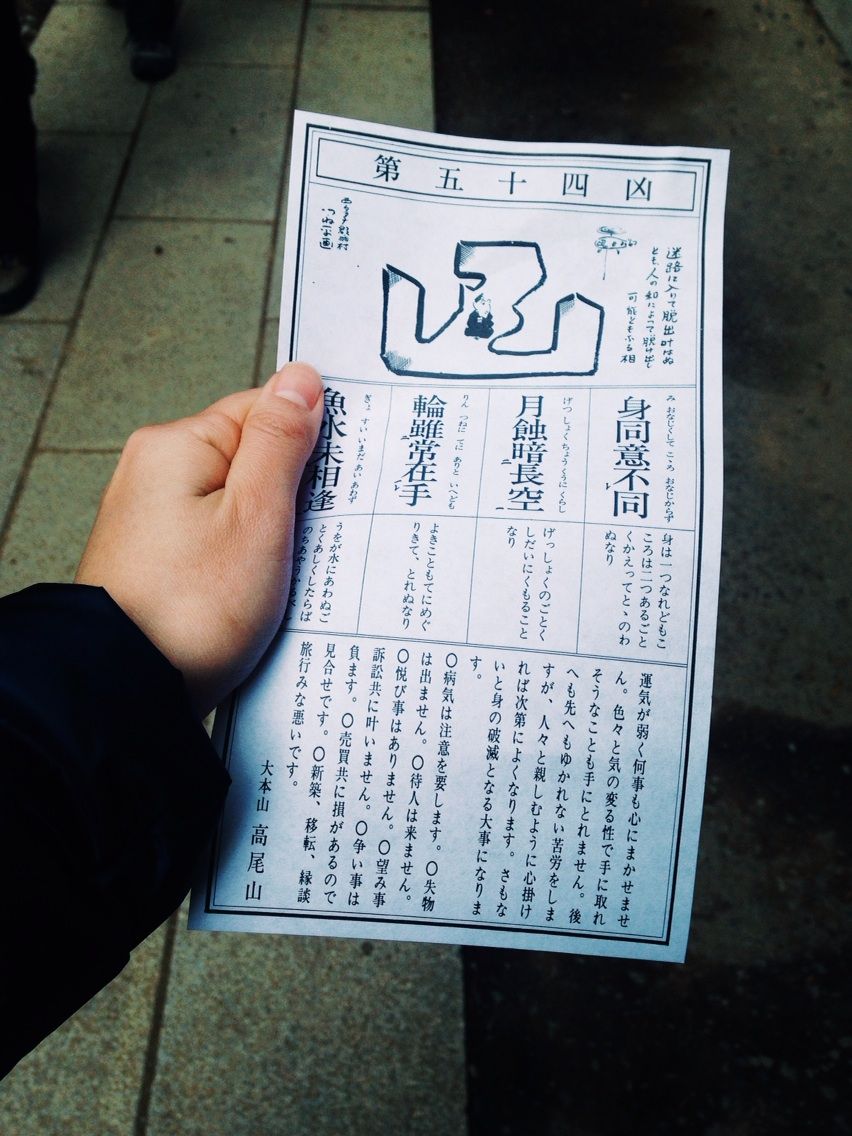 第五十四凶
迷路に入りて脱出叶はぬ
とも、人の和によって脱け出し
可能ともふる相
つね子画
み おなじくして こゝろ おなじからず
身同意不同
げつ しょくちょうくうに くらし
月蝕暗長空
りん つねに てに ありと いへども
輪雖常在手
ぎょ すい いまだ あい あわず
魚水未相逢
身は一つなれどもこ
ころは二つあるごと
くかえってとゝのわ
ぬなり
げっしょくのごとく
しだいにくもること
なり
よきこともてにめぐ
りきて、とれぬなり
うをが水にあわぬご
とくあしくしたらば
運気が弱く何事も心にまかせませ
ん。色々と気の変る性で手に取れ
そうなことも手にとれません。後
へも先へもゆかれない苦労をしま
すが、人々と親しむように心掛け
れば次第によくなります。さもな
いと身の破滅となる大事になりま
す。
〇病気は注意を要します。〇失物
は出ません。〇待人は来ません。
〇悦び事はありません。〇望み事
訴訟共に叶いません。〇争い事は
負ます。〇売買共に損があるので
見合せです。〇新築、移転、縁談
旅行みな悪いです。
大本山 高尾山